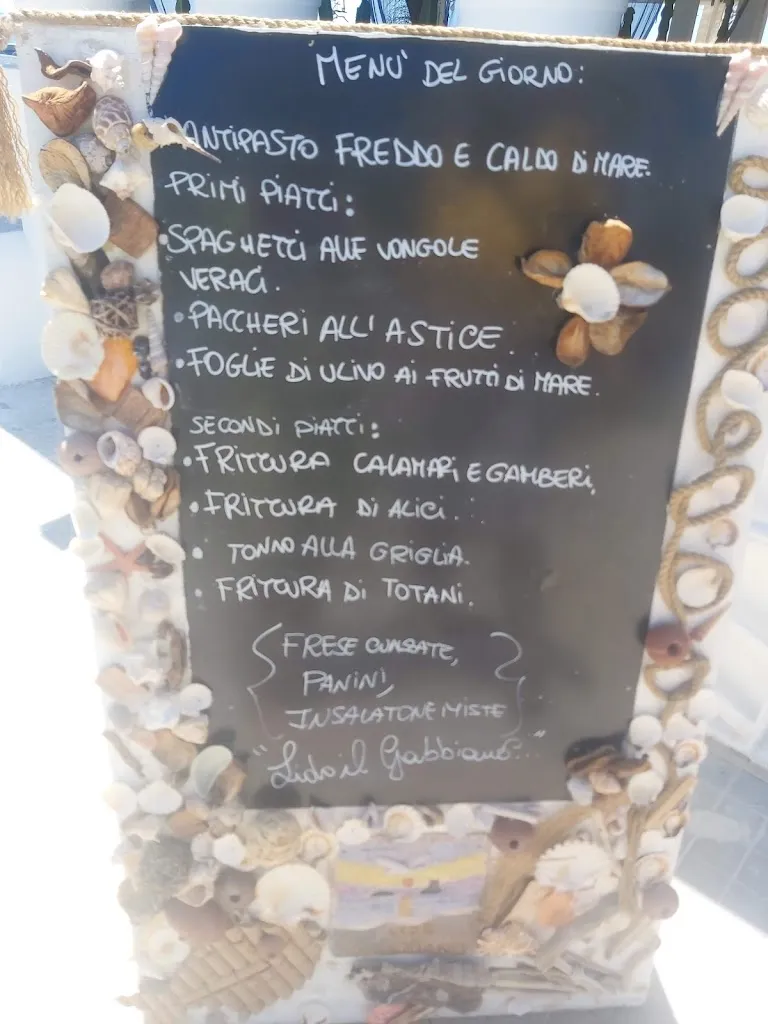 MENU' DEL GIORNO:
ANTIPASTO FREDDO E CALDO DI MARE.
PRIMI PIATTI:
•SPAGHETTI ALLE VONGOLE
VERACI.
•PACCHERI ALL'ASTICE.
•FOGLIE DI ULIVO AI FRUTTI DI MARE.
SECONDI PIATTI:
•FRITTURA CALAMARI E GAMBERI,
•FRITTURA DI ALICI.
• TONNO ALLA GRIGLIA.
• FRITTURA DI TOTANI.
FRESE CUNSATE,
PANINI,
INSALATONE MISTE
"Lido il Gabbiano"